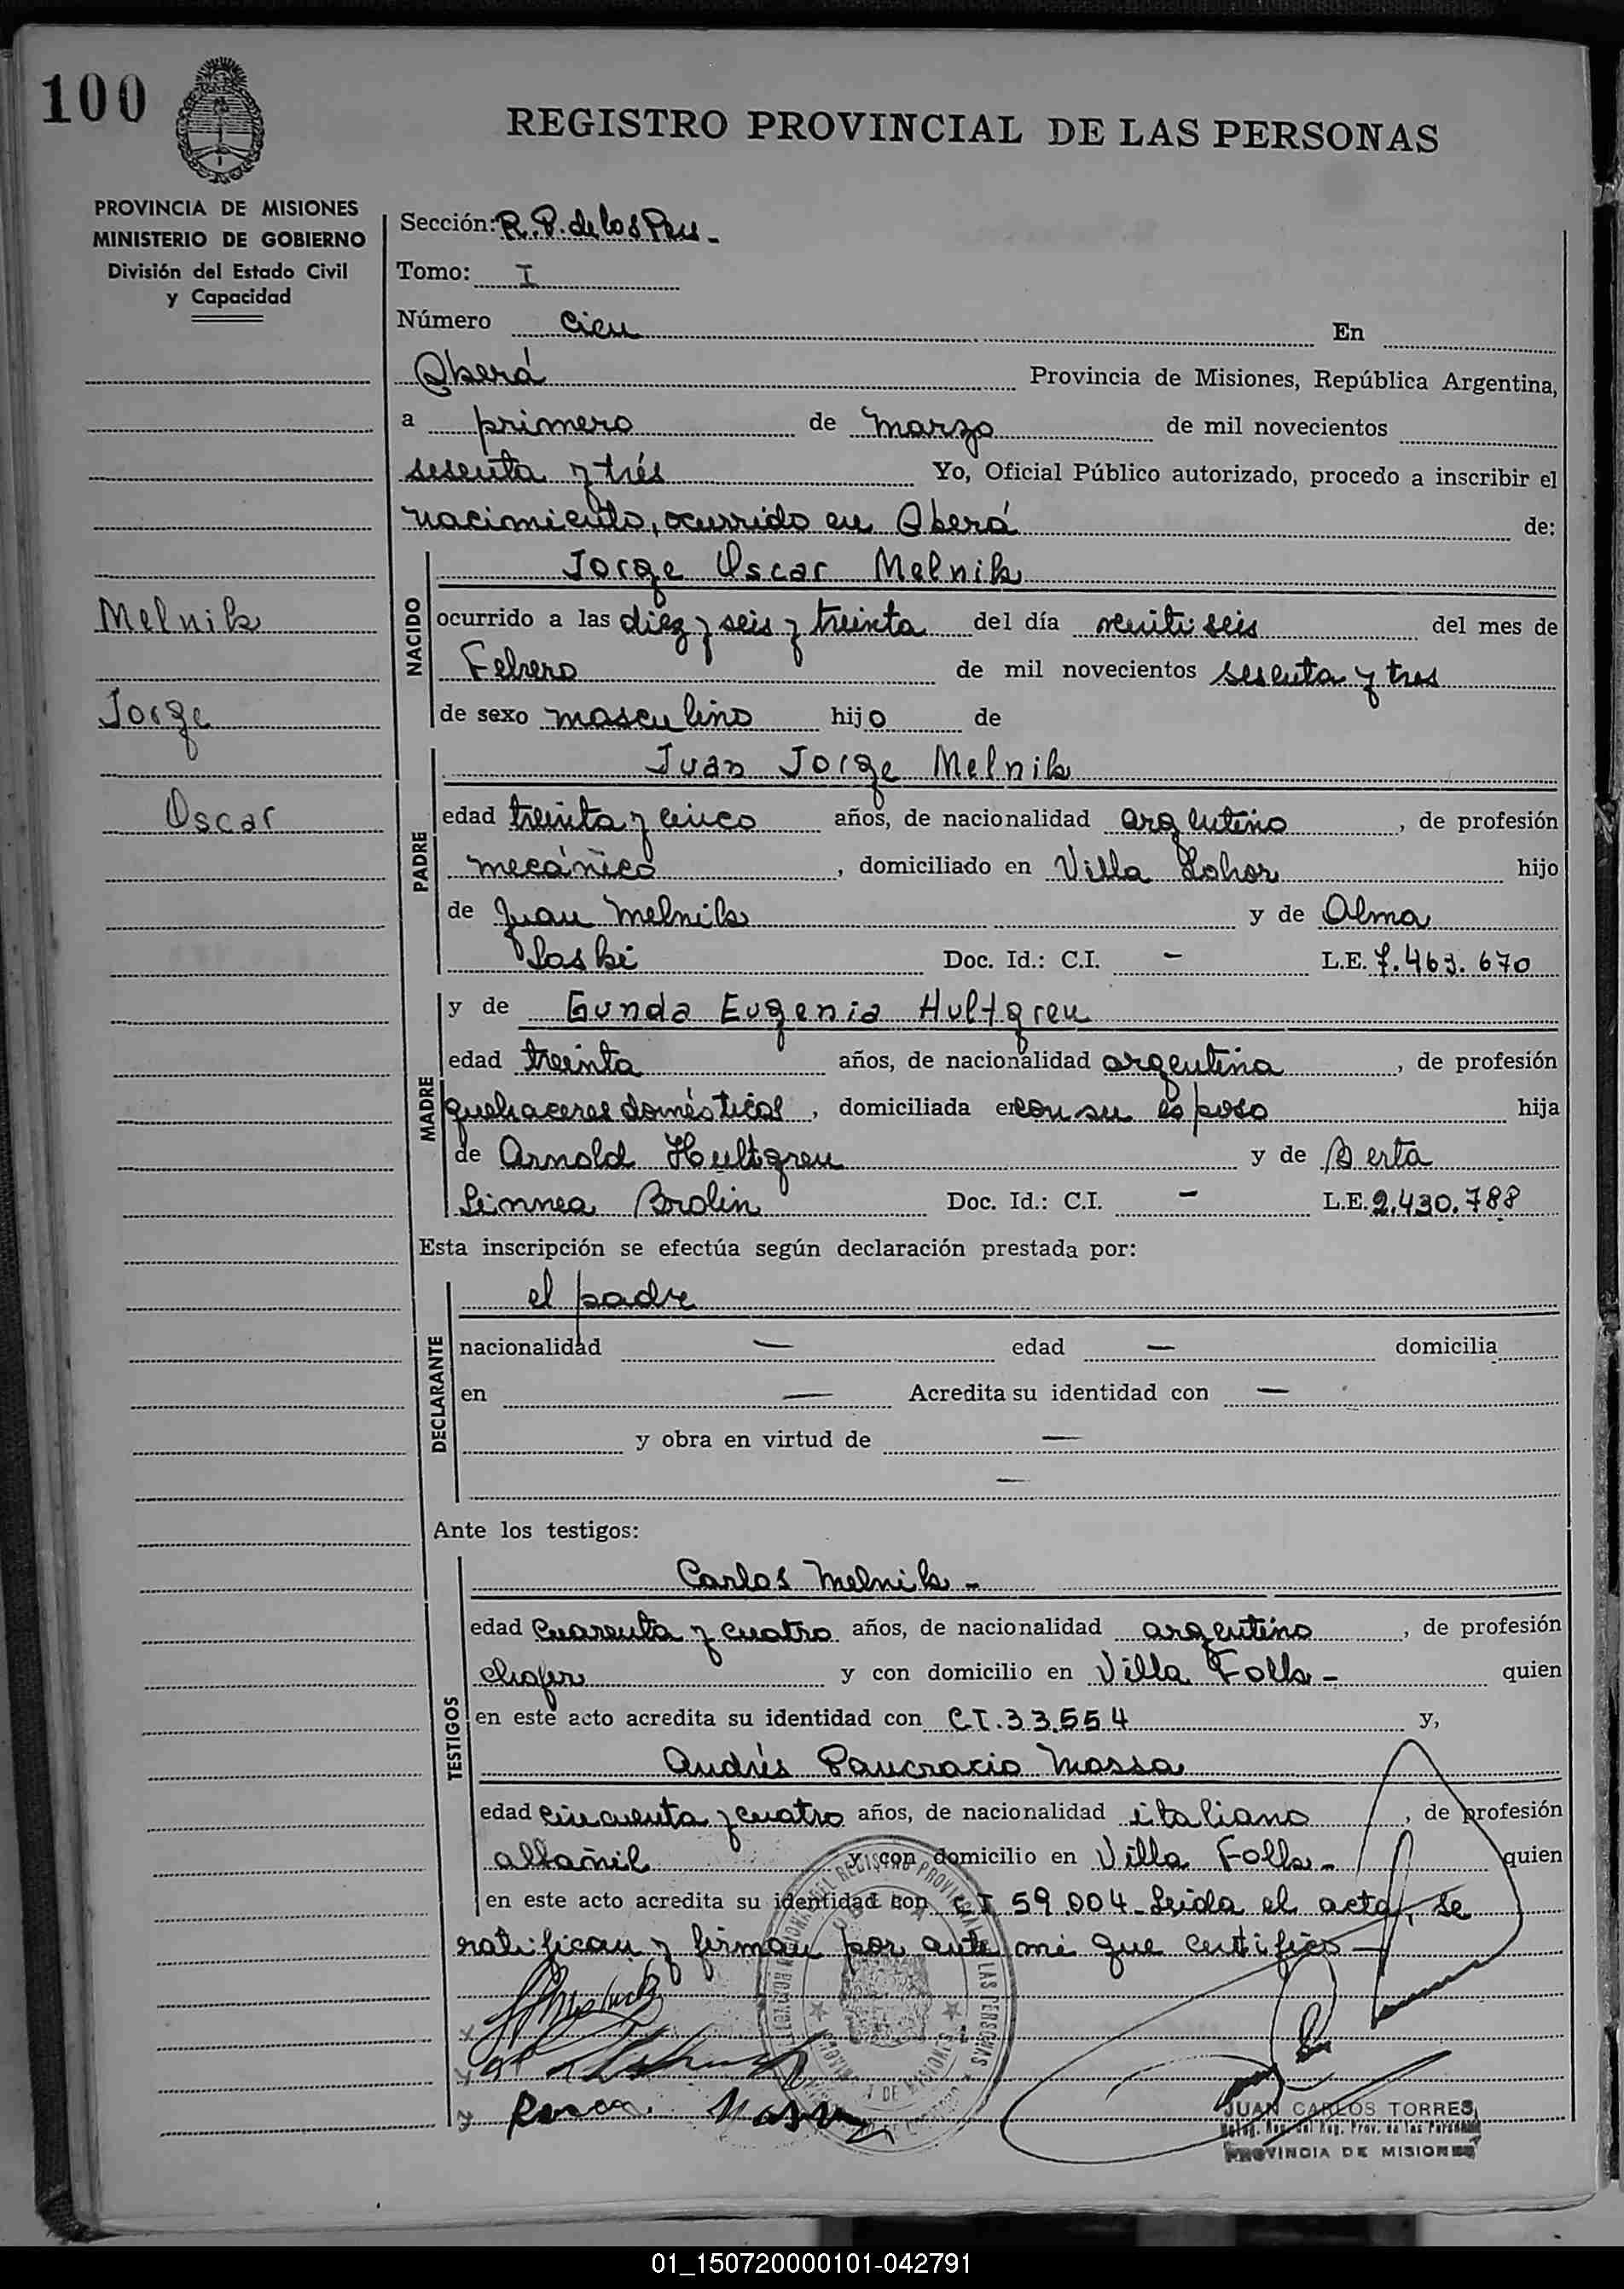 100
REGISTRO PROVINCIAL DE LAS PERSONAS
PROVINCIA DE MISIONES
MINISTERIO DE GOBIERNO
División del Estado Civil
y Capacidad
Sección: R. P. de las Pers -
Tomo: I
Número cien En
Oberá Provincia de Misiones, República Argentina,
a primero de marzo de mil novecientos
sesenta y trés Yo, Oficial Público autorizado, procedo a inscribir el
nacimiento, ocurrido en Oberá de:
NACIDO
Jorge Oscar Melnik
Melnik
ocurrido a las diez y seis y treinta del día veintiseis del mes de
Febrero de mil novecientos sesenta y tres
Jorge
de sexo masculino hijo de
PADRE
Juan Jorge Melnik
Oscar
edad treinta y cinco años, de nacionalidad argentino, de profesión
mecánico, domiciliado en Villa hijo
de Juan Melnik y de Alma
Doc. Id.: C.I. - L.E. 7.463.670
MADRE
y de Gunda Eugenia Hultgren
edad treinta años, de nacionalidad argentina, de profesión
quehaceres domésticos, domiciliada en con su esposo hija
de Arnold Hultgren y de Berta
Linnea Brolin Doc. Id.: C.I. - L.E. 2.430.788
Esta inscripción se efectúa según declaración prestada por:
DECLARANTE
el padre
nacionalidad — edad — domicilia
en — Acredita su identidad con —
y obra en virtud de —
—
Ante los testigos:
TESTIGOS
Carlos Melnik -
edad cuarenta y cuatro años, de nacionalidad argentino, de profesión
chofer y con domicilio en Villa Folk - quien
en este acto acredita su identidad con C.I. 33.554 y,
Andrés Pancracio Massa
edad cincuenta y cuatro años, de nacionalidad italiano, de profesión
albañil y con domicilio en Villa Folk - quien
en este acto acredita su identidad con C I 59.004 - Leida el acta, se
ratifican y firman por ante mi que certifico -
JUAN CARLOS TORRES
PROVINCIA DE MISIONES
01_150720000101-042791